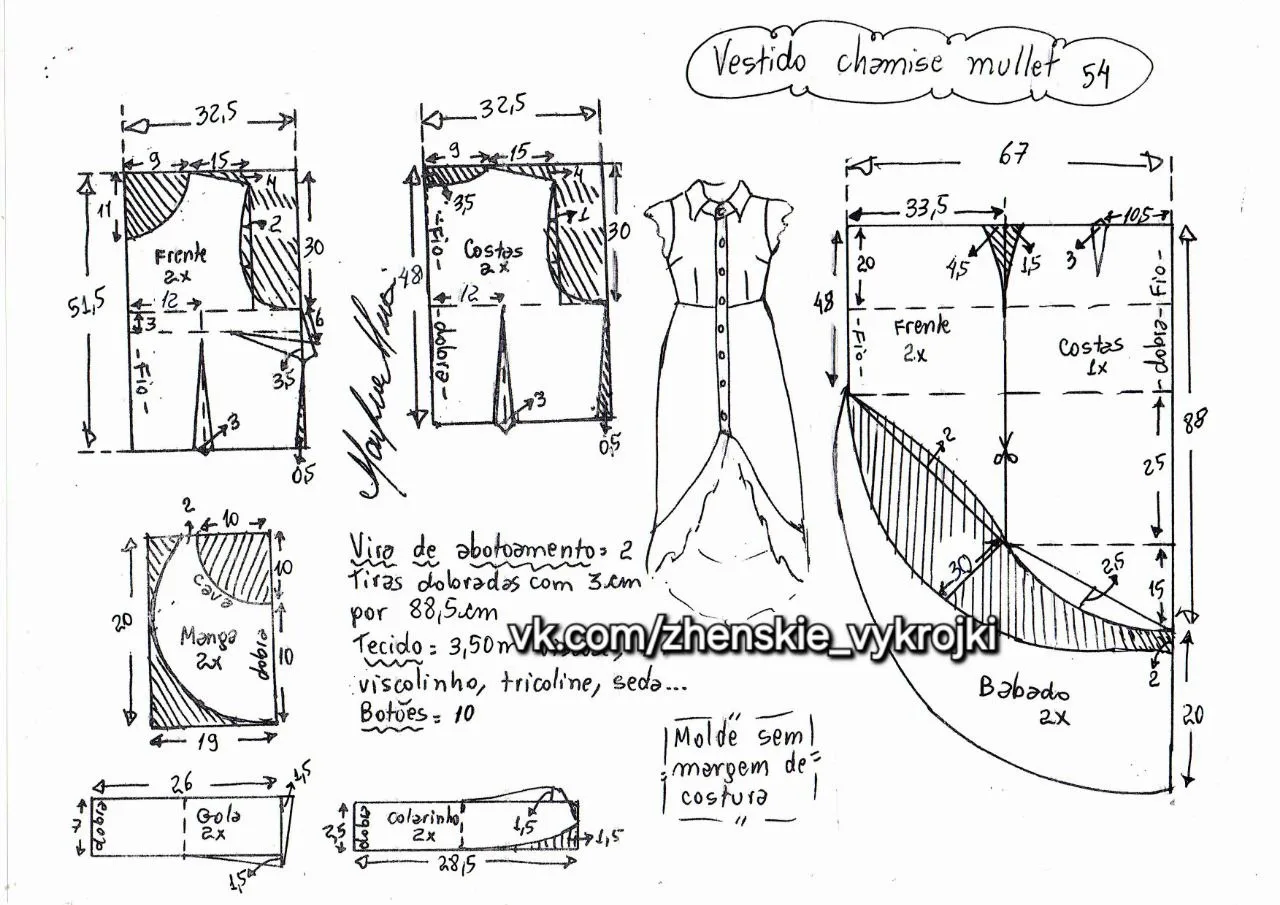 Vestido chamise mullet 54
32,5
9
15
4
11
2
30
Frente
2x
51,5
12
3
6
Fio
3,5
3
0,5
32,5
9
15
4
3,5
1
Fio
Costas
2x
30
48
12
dobra
3
0,5
67
33,5
10,5
4,5
1,5
3
20
48
Fio
Frente
2x
Costas
1x
dobra-Fio
88
2
25
30
2,5
15
2
Babado
2x
20
2
10
10
cava
20
Manga
2x
dobra
10
19
Vira de abotoamento = 2
Tiras dobradas com 3 cm
por 88,5 cm
Tecido = 3,50m
viscolinho, tricoline, seda...
Botões = 10
vk.com/zhenskie_vykrojki
Molde sem
margem de
costura
26
1,5
7
dobra
Gola
2x
1,5
2,5
dobra
colarinho
2x
1,5
1,5
28,5